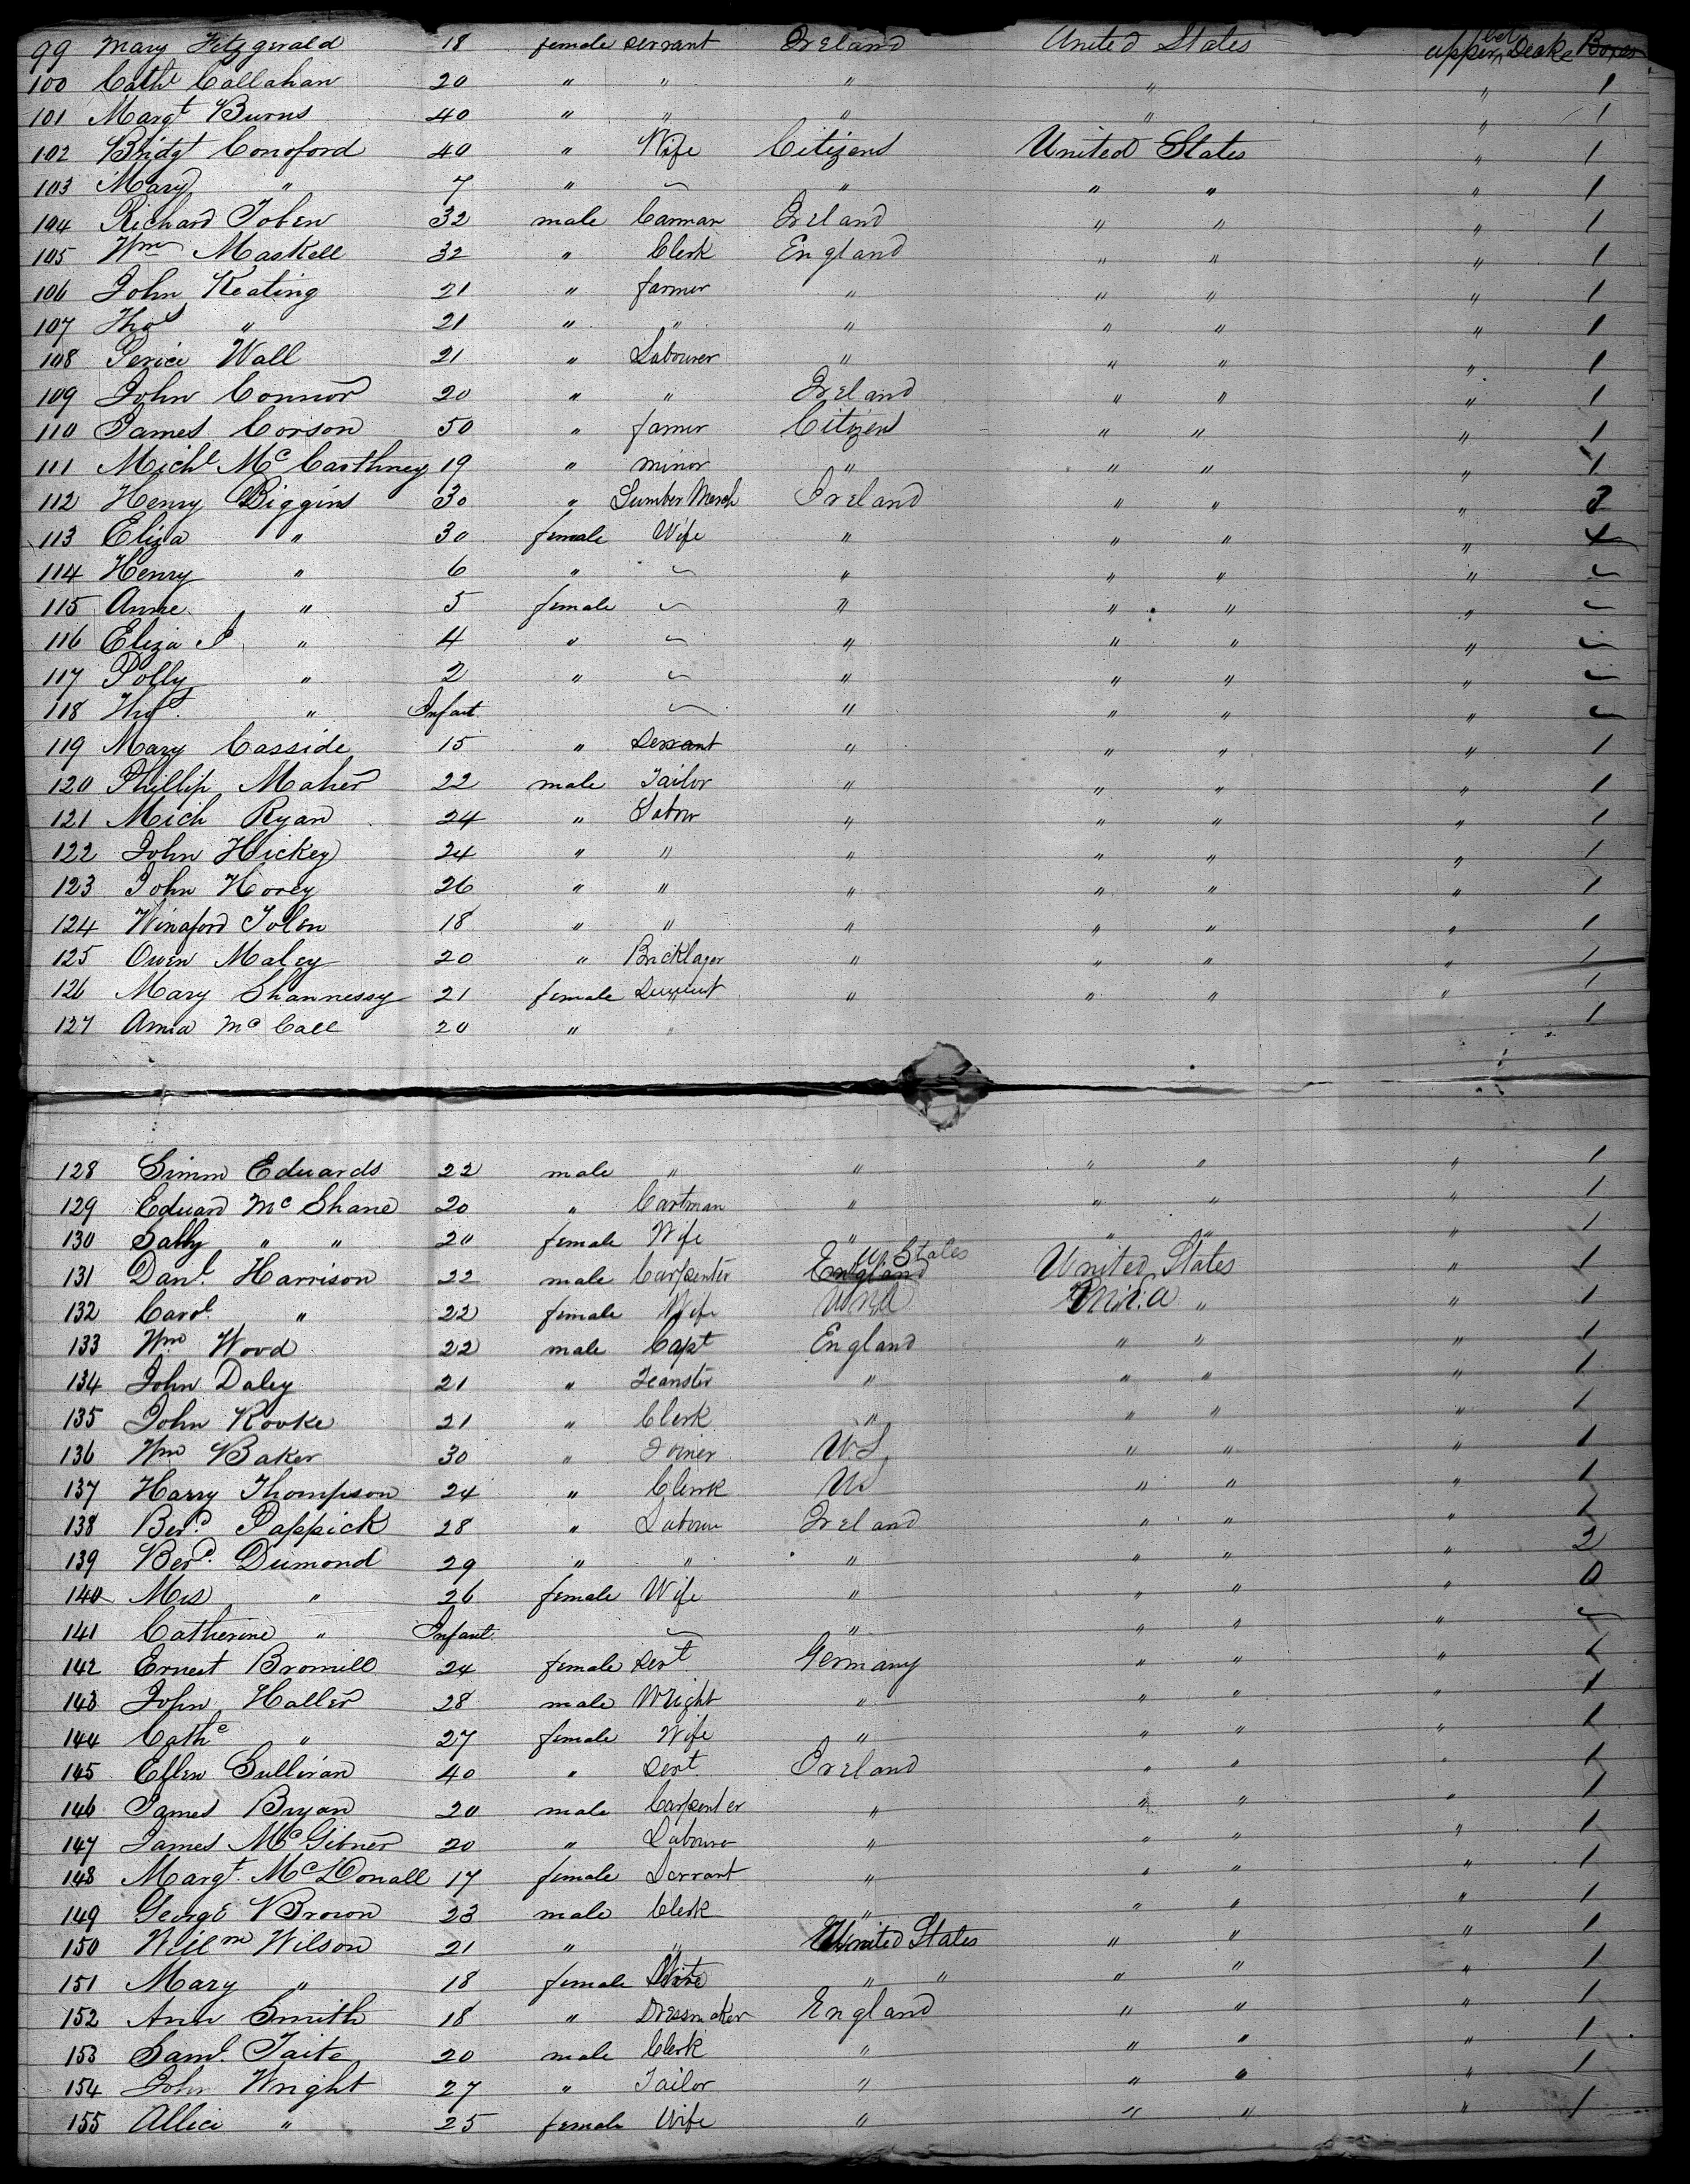 99 Mary Fitzgerald 18 female servant Ireland United States upper bet Decks Boxes
100 Cathe Callahan 20 " " " " " 1
101 Margt Burns 40 " " " " " 1
102 Bridgt Conoford 40 " Wife Citizens United States " 1
103 Mary " 7 " ~ " " " " 1
104 Richard Toben 32 male Carman Ireland " " " 1
105 Wm Maskell 32 " Clerk England " " " 1
106 John Keating 21 " farmer " " " " 1
107 Thos " 21 " " " " " " 1
108 Perice Wall 21 " Labourer " " " " 1
109 John Connor 20 " " Ireland " " " 1
110 James Corson 50 " famer Citizens " " " 1
111 Michl McCarthney 19 " minor " " " " 1
112 Henry Biggins 30 " Lumber Merch Ireland " " "
113 Eliza " 30 female Wife " " " "
114 Henry " 6 " ~ " " " " ~
115 Anne " 5 female ~ " " " " ~
116 Eliza J " 4 " ~ " " " " ~
117 Polly " 2 " ~ " " " " ~
118 Thos. " Infant ~ " " " " ~
119 Mary Casside 15 " Servant " " " " 1
120 Phillip Maher 22 male Tailor " " " " 1
121 Mich Ryan 24 " Labour " " " " 1
122 John Hickey 24 " " " " " " 1
123 John Hovey 26 " " " " " " 1
124 Winaford Tolen 18 " " " " " " 1
125 Owen Maley 20 " Bricklayer " " " " 1
126 Mary Shannessy 21 female Servent " " " " 1
127 Anna McCall 20 " " 1
128 Simm Eduards 22 male " " " " " 1
129 Eduard McShane 20 " Cartman " " " " 1
130 Sally " " 20 female Wife " " " " 1
131 Danl. Harrison 22 male Carpenter England U States United States " 1
132 Carol. " 22 female Wife " " 1
133 Wm Wood 22 male Capt England " " " 1
134 John Daley 21 " Teamster " " " " 1
135 John Rooke 21 " Clerk " " " " 1
136 Wm Baker 30 " Joiner U.S. " " " 1
137 Harry Thompson 24 " Clerk US " " " 1
138 Berd. Pappick 28 " Labour Ireland " " " 1
139 Berd. Dumond 29 " " " " " " 2
140 Mrs " 26 female Wife " " " " 0
141 Catherine " Infant ~ " " " " ~
142 Ernest Bromill 24 female Sert Germany " " " 1
143 John Haller 28 male Wright " " " " 1
144 Cathe " 27 female Wife " " " " 1
145 Ellen Sullivan 40 " Sert. Ireland " " " 1
146 James Bryan 20 male Carpenter " " " " 1
147 James McGibner 20 " Labourer " " " " 1
148 Margt. McDonall 17 female Servant " " " " 1
149 George Brown 23 male Clerk " " " " 1
150 Willm Wilson 21 " " United States " " " 1
151 Mary " 18 female Wife " " " " " 1
152 Ann Smith 18 " Dressmaker England " " " 1
153 Saml. Taite 20 male Clerk " " " " 1
154 John Wright 27 " Tailor " " " " 1
155 Allice " 25 female Wife " " " " 1